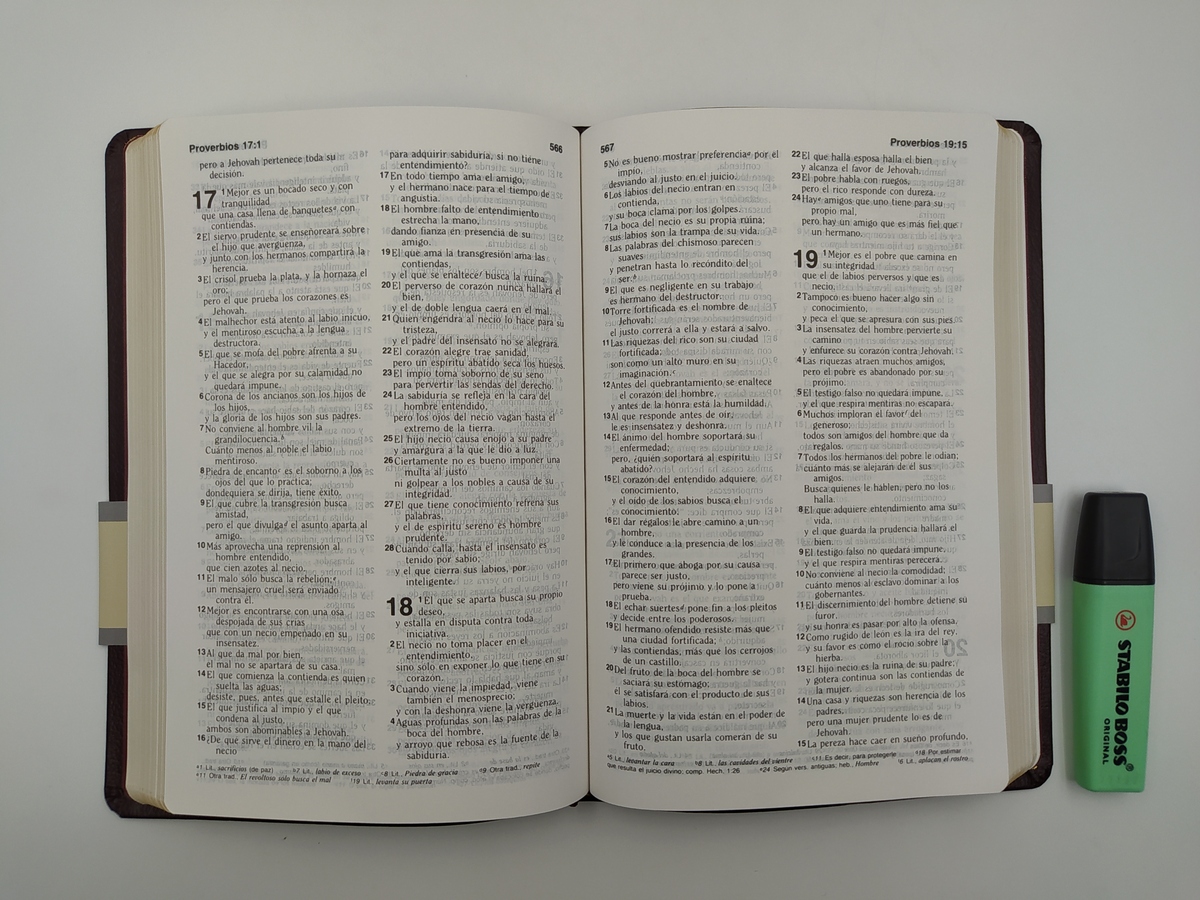 Proverbios 17:1
566
pero a Jehovah pertenece toda su
decisión.
17 1Mejor es un bocado seco y con
tranquilidad
que una casa llena de banquetesª con
contiendas.
2El siervo prudente se enseñoreará sobre
el hijo que avergüenza,
y junto con los hermanos compartirá la
herencia.
3El crisol prueba la plata, y la hornaza el
oro;
pero el que prueba los corazones es
Jehovah.
4El malhechor está atento al labio inicuo,
y el mentiroso escucha a la lengua
destructora.
5El que se mofa del pobre afrenta a su
Hacedor,
y el que se alegra por su calamidad no
quedará impune.
6Corona de los ancianos son los hijos de
los hijos,
y la gloria de los hijos son sus padres.
7No conviene al hombre vil la
grandilocuencia.ᵇ
Cuánto menos al noble el labio
mentiroso.
8Piedra de encantoᶜ es el soborno a los
ojos del que lo practica;
dondequiera se dirija, tiene éxito.
9El que cubre la transgresión busca
amistad,
pero el que divulgaᵈ el asunto aparta al
amigo.
10Más aprovecha una reprensión al
hombre entendido,
que cien azotes al necio.
11El malo sólo busca la rebelión;ᵉ
un mensajero cruel será enviado
contra él.
12Mejor es encontrarse con una osa
despojada de sus crías
que con un necio empeñado en su
insensatez.
13Al que da mal por bien,
el mal no se apartará de su casa.
14El que comienza la contienda es quien
suelta las aguas;
desiste, pues, antes que estalle el pleito.
15El que justifica al impío y el que
condena al justo,
ambos son abominables a Jehovah.
16¿De qué sirve el dinero en la mano del
necio
para adquirir sabiduría, si no tiene
entendimiento?
17En todo tiempo ama el amigo,
y el hermano nace para el tiempo de
angustia.
18El hombre falto de entendimiento
estrecha la mano,
dando fianza en presencia de su
amigo.
19El que ama la transgresión ama las
contiendas,
y el que se enalteceᶠ busca la ruina.
20El perverso de corazón nunca hallará el
bien,
y el de doble lengua caerá en el mal.
21Quien engendra al necio lo hace para su
tristeza,
y el padre del insensato no se alegrará.
22El corazón alegre trae sanidad,
pero un espíritu abatido seca los huesos.
23El impío toma soborno de su seno
para pervertir las sendas del derecho.
24La sabiduría se refleja en la cara del
hombre entendido,
pero los ojos del necio vagan hasta el
extremo de la tierra.
25El hijo necio causa enojo a su padre
y amargura a la que le dio a luz.
26Ciertamente no es bueno imponer una
multa al justo
ni golpear a los nobles a causa de su
integridad.
27El que tiene conocimiento refrena sus
palabras,
y el de espíritu sereno es hombre
prudente.
28Cuando calla, hasta el insensato es
tenido por sabio;
y el que cierra sus labios, por
inteligente.
18 1El que se aparta busca su propio
deseo,
y estalla en disputa contra toda
iniciativa.
2El necio no toma placer en el
entendimiento,
sino sólo en exponer lo que tiene en su
corazón.
3Cuando viene la impiedad, viene
también el menosprecio;
y con la deshonra viene la vergüenza.
4Aguas profundas son las palabras de la
boca del hombre,
y arroyo que rebosa es la fuente de la
sabiduría.
ª1 Lit., sacrificios (de paz) ᵇ7 Lit., labio de exceso ᶜ8 Lit., Piedra de gracia ᵈ9 Otra trad., repite
ᵉ11 Otra trad., El revoltoso sólo busca el mal ᶠ19 Lit., levanta su puerta
567
Proverbios 19:15
5No es bueno mostrar preferenciaª por el
impío,
desviando al justo en el juicio.
6Los labios del necio entran en
contienda,
y su boca clama por los golpes.
7La boca del necio es su propia ruina;
sus labios son la trampa de su vida.
8Las palabras del chismoso parecen
suaves
y penetran hasta lo recóndito del
ser.ᵇ
9El que es negligente en su trabajo
es hermano del destructor.
10Torre fortificada es el nombre de
Jehovah;
el justo correrá a ella y estará a salvo.
11Las riquezas del rico son su ciudad
fortificada;
son como un alto muro en su
imaginación.ᶜ
12Antes del quebrantamiento se enaltece
el corazón del hombre,
y antes de la honra está la humildad.
13Al que responde antes de oír,
le es insensatez y deshonra.
14El ánimo del hombre soportará su
enfermedad;
pero, ¿quién soportará al espíritu
abatido?
15El corazón del entendido adquiere
conocimiento,
y el oído de los sabios busca el
conocimiento.
16El dar regalos le abre camino a un
hombre,
y le conduce a la presencia de los
grandes.
17El primero que aboga por su causa
parece ser justo,
pero viene su prójimo y lo pone a
prueba.
18El echar suertesᵈ pone fin a los pleitos
y decide entre los poderosos.
19El hermano ofendido resiste más que
una ciudad fortificada;
y las contiendas, más que los cerrojos
de un castillo.
20Del fruto de la boca del hombre se
saciará su estómago;
él se satisfará con el producto de sus
labios.
21La muerte y la vida están en el poder de
la lengua,
y los que gustan usarla comerán de su
fruto.
22El que halla esposa halla el bien
y alcanza el favor de Jehovah.
23El pobre habla con ruegos,
pero el rico responde con dureza.
24Hayᵉ amigos que uno tiene para su
propio mal,
pero hay un amigo que es más fiel que
un hermano.
19 1Mejor es el pobre que camina en
su integridad
que el de labios perversos y que es
necio.
2Tampoco es bueno hacer algo sin
conocimiento,
y peca el que se apresura con sus pies.
3La insensatez del hombre pervierte su
camino
y enfurece su corazón contra Jehovah.
4Las riquezas atraen muchos amigos,
pero el pobre es abandonado por su
prójimo.
5El testigo falso no quedará impune,
y el que respira mentiras no escapará.
6Muchos imploran el favorᶠ del
generoso;
todos son amigos del hombre que da
regalos.
7Todos los hermanos del pobre le odian;
¡cuánto más se alejarán de él sus
amigos.
Busca quienes le hablen, pero no los
halla.
8El que adquiere entendimiento ama su
vida,
y el que guarda la prudencia hallará el
bien.
9El testigo falso no quedará impune,
y el que respira mentiras perecerá.
10No conviene al necio la comodidad;
¡cuánto menos al esclavo dominar a los
gobernantes.
11El discernimiento del hombre detiene su
furor,
y su honra es pasar por alto la ofensa.
12Como rugido de león es la ira del rey,
y su favor es como el rocío sobre la
hierba.
13El hijo necio es la ruina de su padre;
y gotera continua son las contiendas de
la mujer.
14Una casa y riquezas son herencia de los
padres,
pero una mujer prudente lo es de
Jehovah.
15La pereza hace caer en sueño profundo,
ª5 Lit., levantar la cara ᵇ8 Lit., las cavidades del vientre ᶜ11 Es decir, para protegerle ᵈ18 Por estimar
que resulta el juicio divino; comp. Hech. 1:26 ᵉ24 Según vers. antiguas; heb., Hombre ᶠ6 Lit., aplacan el rostro
STABILO BOSS®
ORIGINAL